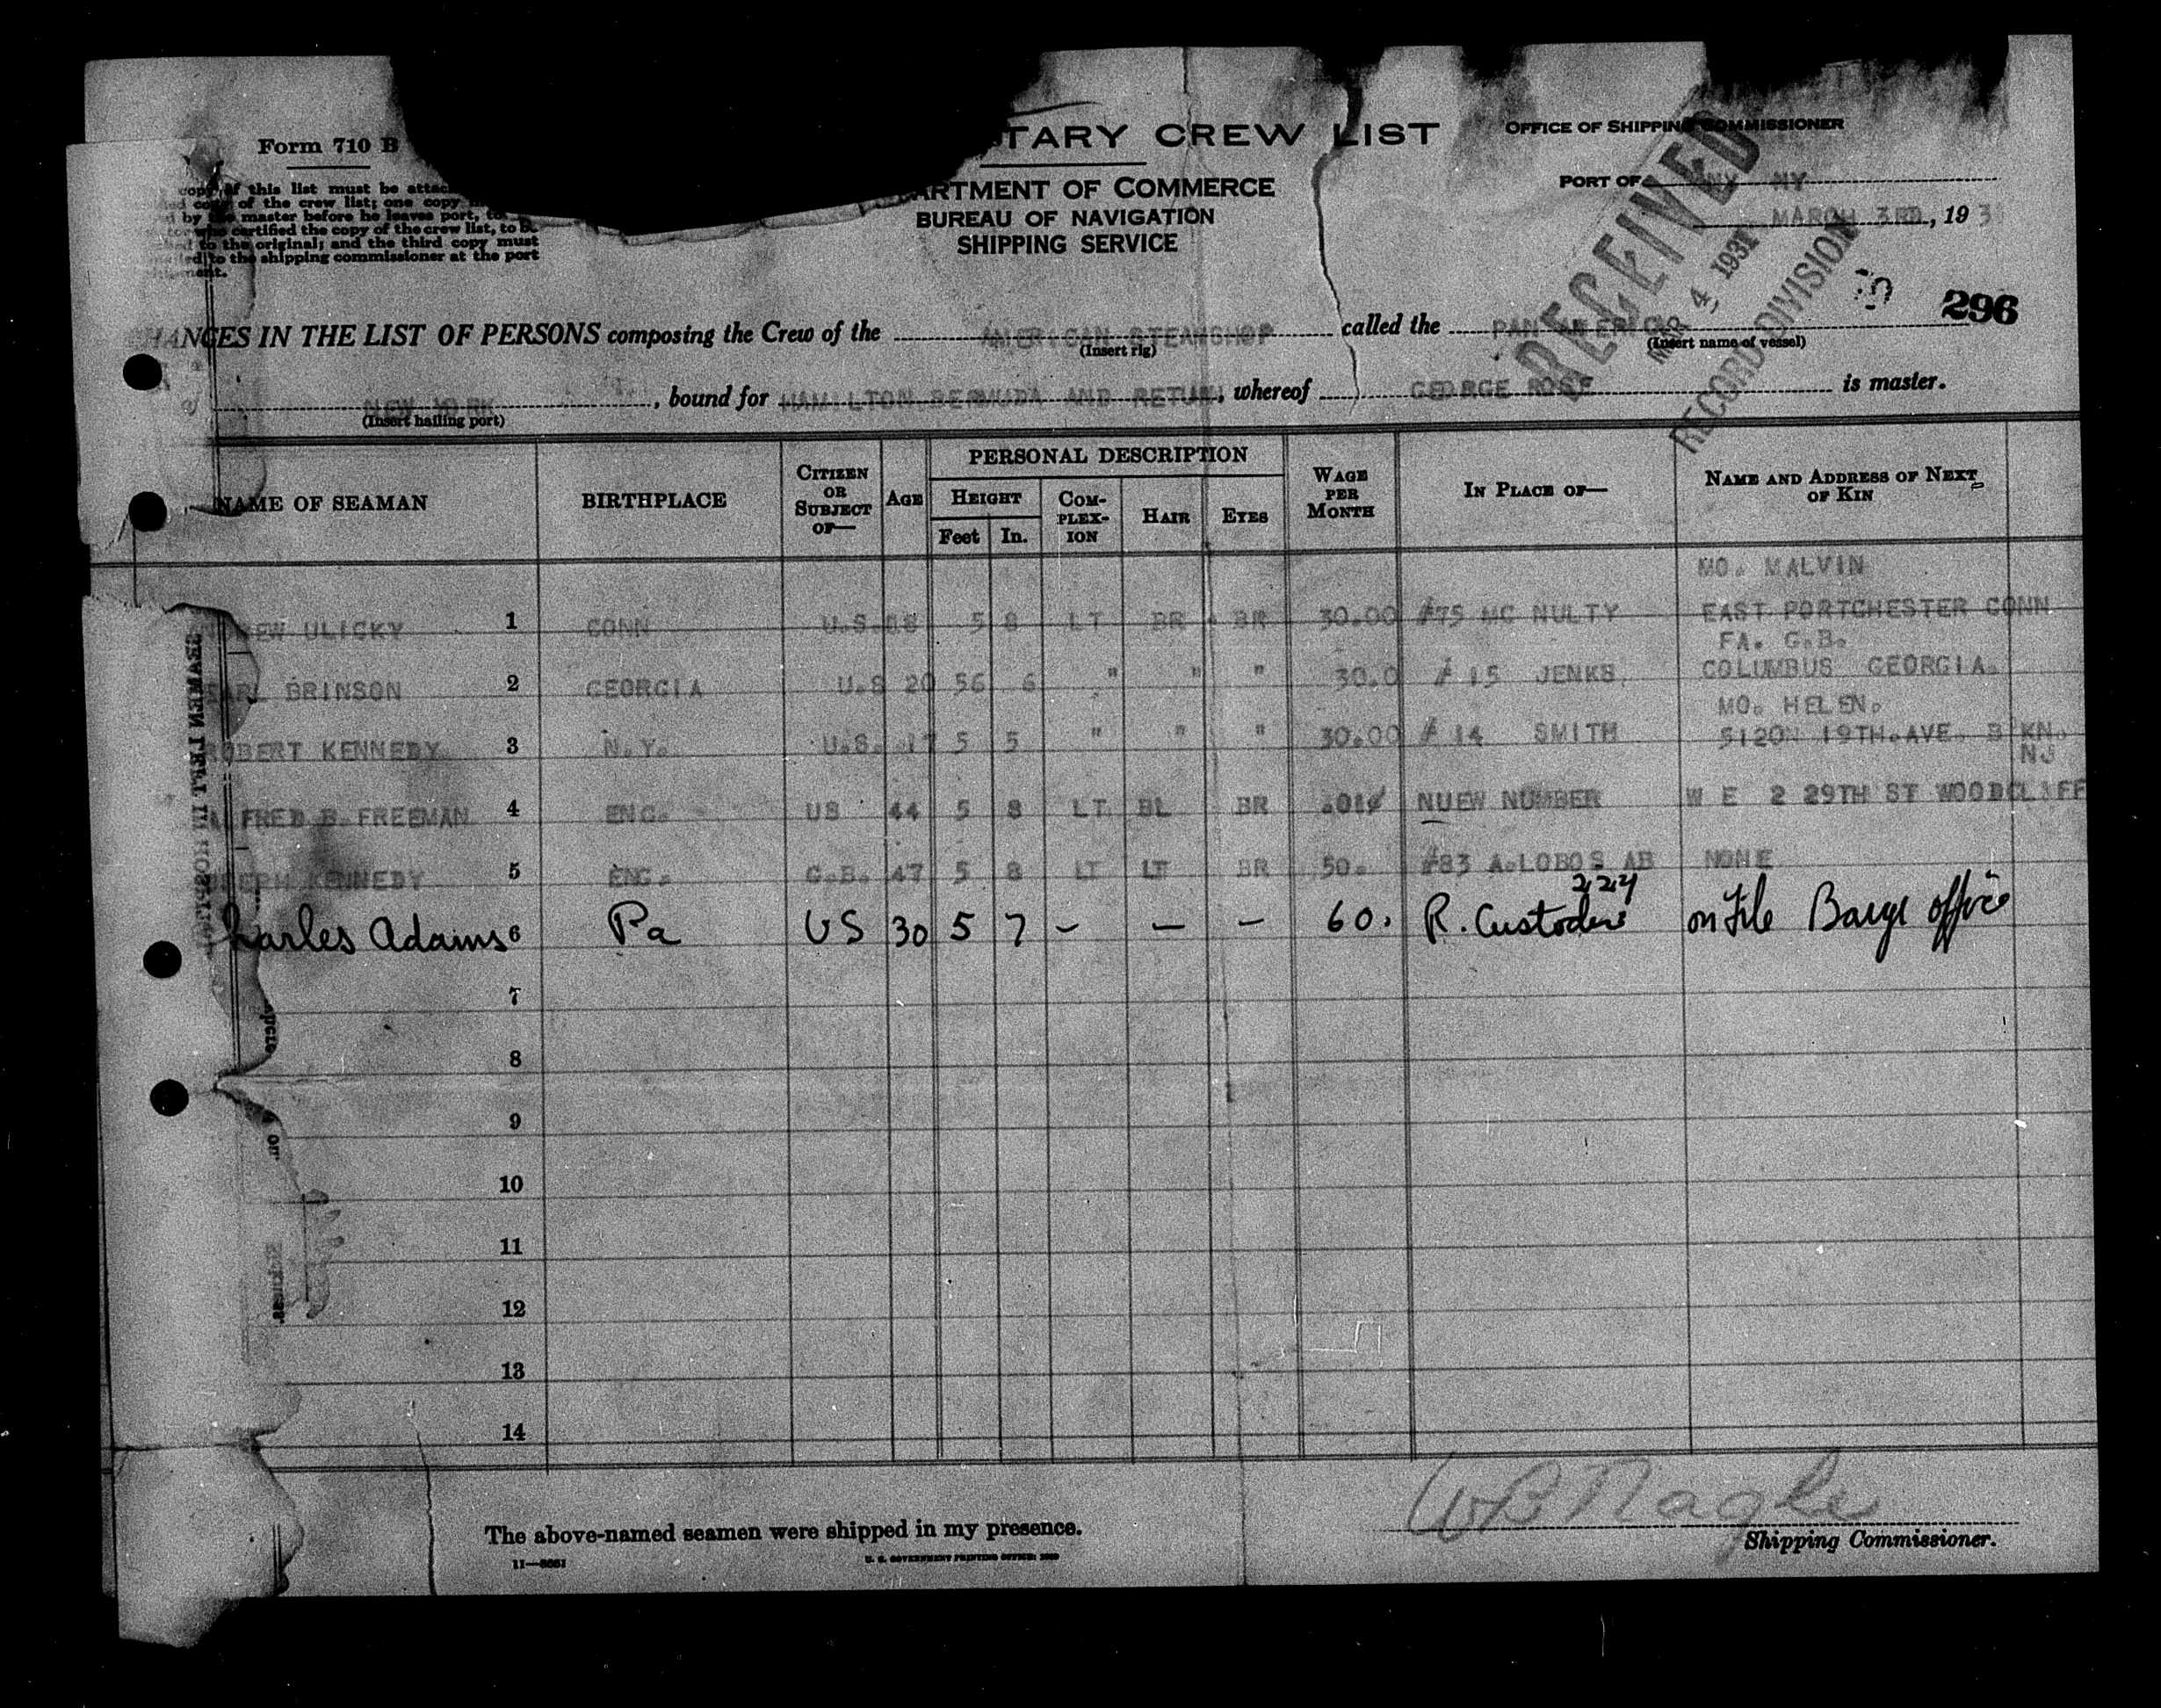 Form 710 B
TARY CREW LIST
OFFICE OF SHIPPING COMMISSIONER
PORT OF NY NY
MARCH 3RD, 193
copy of this list must be attac
copy of the crew list; one copy
by the master before he leaves port, to
who certified the copy of the crew list, to be
to the original; and the third copy must
ed to the shipping commissioner at the port
ment.
ARTMENT OF COMMERCE
BUREAU OF NAVIGATION
SHIPPING SERVICE
RECEIVED
MAR 4 1931
RECORD DIVISION
296
HANGES IN THE LIST OF PERSONS composing the Crew of the AMERICAN STEAMSHOP called the PAN AMERICA
(Insert rig) (Insert name of vessel)
NEW YORK, bound for HAMILTON BERMUDA AND RETURN, whereof GEORGE ROSE is master.
(Insert hailing port)
NAME OF SEAMAN BIRTHPLACE CITIZEN OR SUBJECT OF— AGE PERSONAL DESCRIPTION HEIGHT Feet In. COM-PLEX-ION HAIR EYES WAGE PER MONTH IN PLACE OF— NAME AND ADDRESS OF NEXT OF KIN
MO. MALVIN
EW ULICKY 1 CONN U.S. 18 5 8 LT BR BR 30.00 #75 MC NULTY EAST PORTCHESTER CONN
FA. G.B.
ARL BRINSON 2 GEORGIA U.S 20 56 6 " " " 30.0 # 15 JENKS. COLUMBUS GEORGIA.
MO. HELEN.
ROBERT KENNEDY 3 N.Y. U.S. 17 5 5 " " " 30.00 # 14 SMITH 5120 19TH.AVE. B KN.
NJ
FRED B. FREEMAN 4 ENG. US 44 5 8 LT BL BR NUEW NUMBER W E 2 29TH ST WOODCLIFF
OSEPH KENNEDY 5 ENG. G.B. 47 5 8 LT LT BR 50. #83 A.LOBOS AB NONE
224
harles Adams 6 Pa US 30 5 7 – – – 60. R. Custodio on File Barge office
7
8
9
10
11
12
13
14
SEAMEN LEFT IN HOSPITAL
The above-named seamen were shipped in my presence.
W B Nagle
Shipping Commissioner.
U. S. GOVERNMENT PRINTING OFFICE